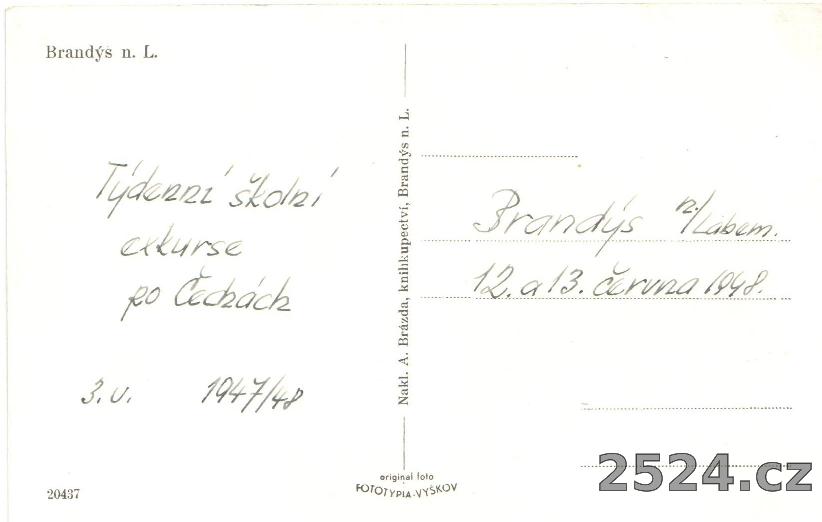 Brandýs n. L.
Týdenní školní
exkurse
po Čechách
3. v. 1947/48
Nakl. A. Brázda, knihkupectví, Brandýs n. L.
Brandýs n/Labem.
12. a 13. června 1948.
20437
original foto
FOTOTYPIA-VYŠKOV
2524.cz